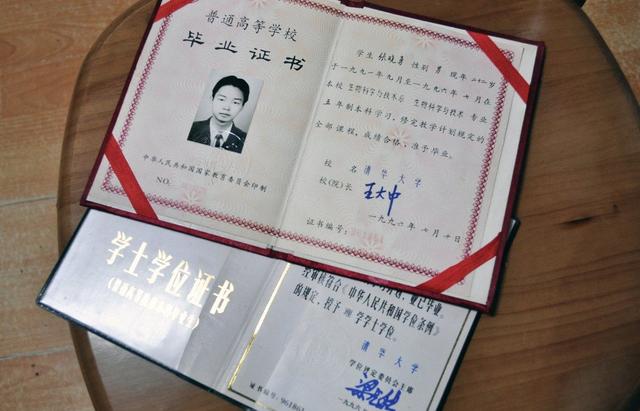 普通高等学校
毕业证书
中华人民共和国国家教育委员会印制
NO.
学生 张晓勇 性别 男 现年 二十二岁
于一九九一年九月至一九九六年七月在
本校 生物科学与技术系 生物科学与技术 专业
五年制本科学习,修完教学计划规定的
全部课程,成绩合格,准予毕业。
校 名 清华大学
校(院)长 王大中
一九九六年七月十日
证书编号:
学士学位证书
业已毕业,
经审核符合《中华人民共和国学位条例》
的规定,授予 理 学学士学位。
清华大学
学位评定委员会主席
一九九六年
证书编号